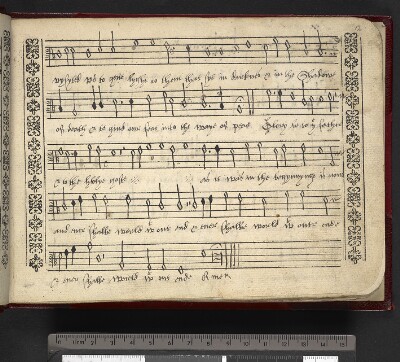 to geve light to them that sit in darknes & in the shadow
of death & to guid our feet into the waye of peace Glory to ye father
& to the holye gost as it was in the beginning is now
and ever shalbe world wt out end & ever shalbe world wt oute end
& ever shalbe world wt out ende Amen